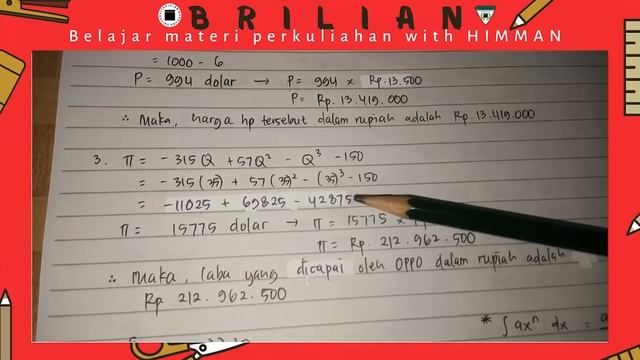 BRILIAN
Belajar materi perkuliahan with HIMMAN
= 1000 - 6
P = 994 dolar → P = 994 x Rp. 13.500
P = Rp. 13.419.000
∴ Maka, harga hp tersebut dalam rupiah adalah Rp. 13.419.000
3. π = - 315Q + 57Q² - Q³ - 150
= - 315 (35) + 57 (35)² - (35)³ - 150
= -11025 + 69825 - 42875
π = 15775 dolar → π = 15775 x
π = Rp. 212.962.500
∴ Maka, laba yang dicapai oleh OPPO dalam rupiah adalah
Rp 212.962.500
* ∫ axⁿ dx =